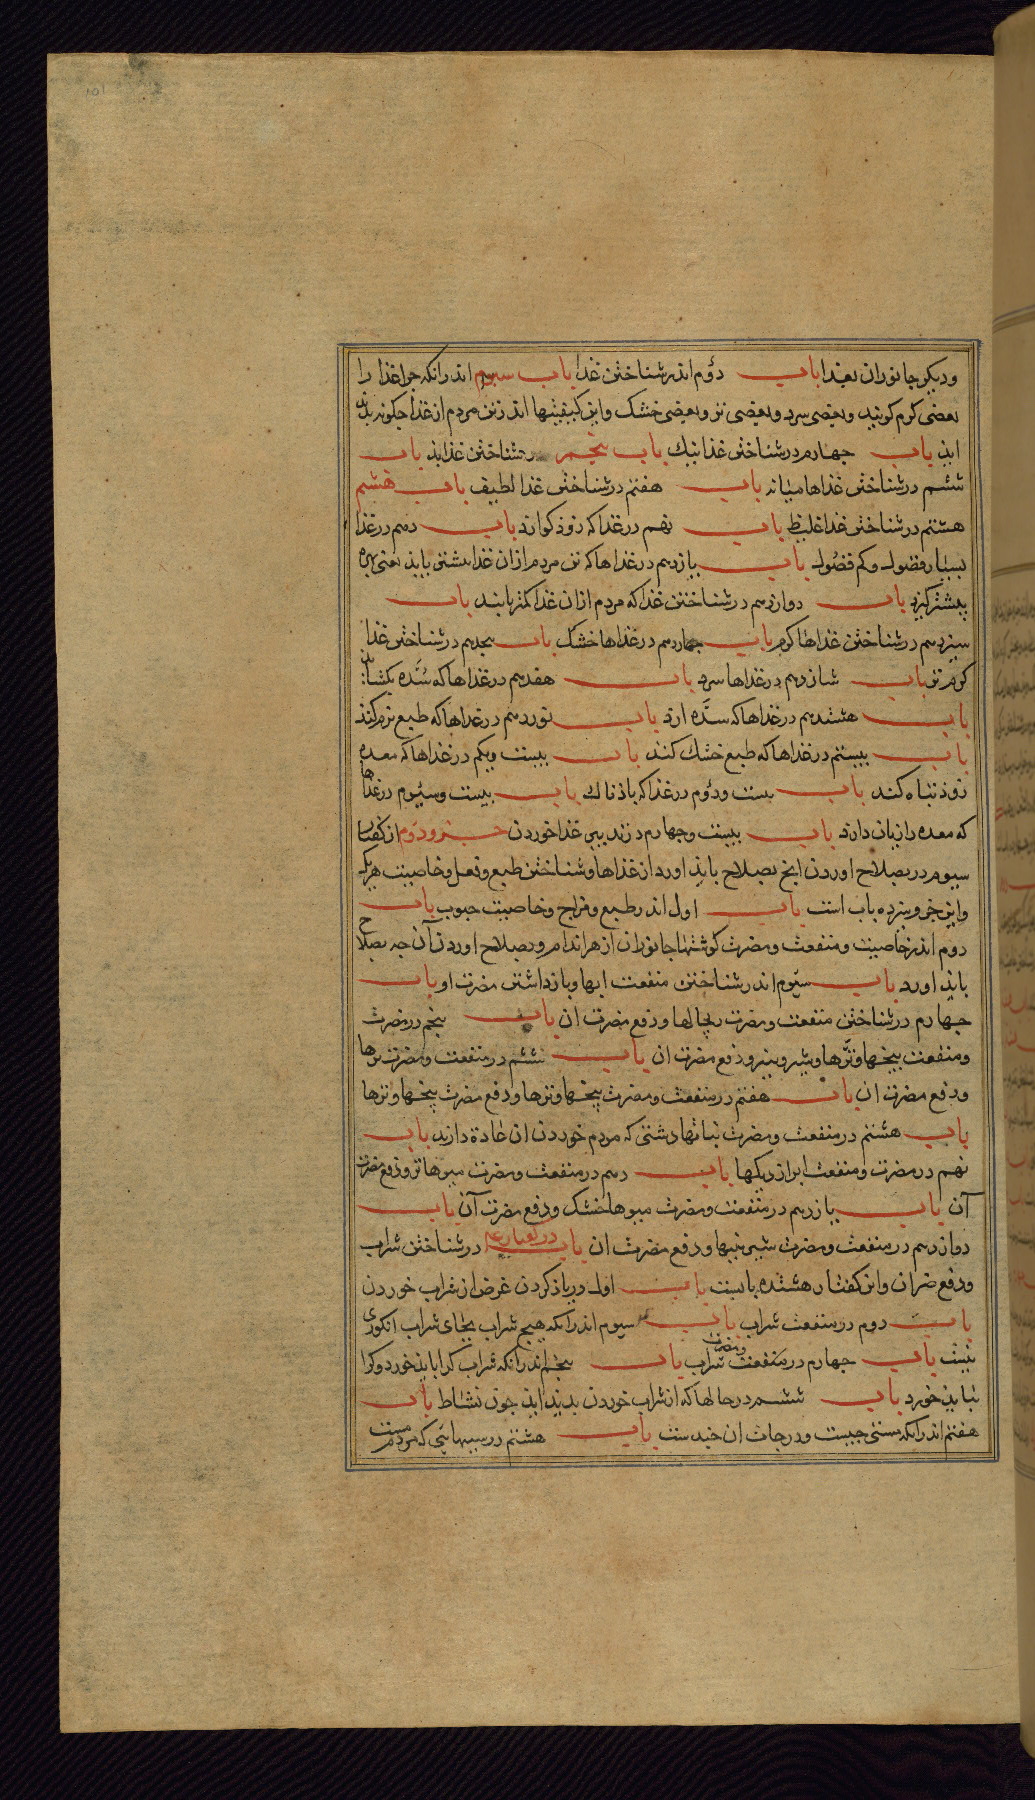 ودیکر جانوران بغذا باب دوم اندر شناختن غذا باب سیوم اندر انکه چرا غذا را
بعضی کرم کویند و بعضی سرد و بعضی تر و بعضی خشک و این کیفیتها اندر تن مردم از غذا چکونه پدید
اید باب چهارم در شناختن غذا نیک باب پنجم در شناختن غذا بد باب
ششم در شناختن غذاها میانه باب هفتم در شناختن غذا لطیف باب هشتم
هشتم در شناختن غذا غلیظ باب نهم در غذا که زوذ کوارد باب دهم در غذا
بسیار فضول و کم فضول باب یازدهم در غذاها که تن مردم ازان غذا بیشتر یابد یعنی بهره
بیشتر کیرد باب دوازدهم در شناختن غذا که مردم ازان غذا کمتر یابند باب
سیزدهم در شناختن غذاها کرم باب چهاردهم در غذاها خشک باب پنجدهم در شناختن غذا
کرم تر باب شانزدهم در غذاها سرد باب هفدهم در غذاها که سده بکشاید
باب هشتدهم در غذاها که سده ارد باب نوزدهم در غذاها که طبع نرم کند
باب بیستم در غذاها که طبع خشک کند باب بیست ویکم در غذاها که معده
زوذ تباه کند باب بیست ودوم در غذا که باذناک باب بیست وسیوم در غذاها
که معده را زیان دارد باب بیست وچهارم در تدبیر غذا خوردن جزو دوم از کفتار
سیوم در بصلاح اوردن انچ بصلاح باید اورد از غذاها و شناختن طبع و فعل و خاصیت هر یک
واین جزو سیزده باب است باب اول اندر طبع و مزاج و خاصیت حبوب باب
دوم اندر خاصیت و منفعت و مضرت کوشتها جانوران از هر اندام و بصلاح اوردن آن چه بصلاح
باید اورد باب سیوم اندر شناختن منفعت ابها و بازداشتن مضرت او باب
چهارم در شناختن منفعت و مضرت ریچالها و دفع مضرت ان باب پنجم در مضرت
ومنفعت بیخها و ترها و شیر و پنیر و دفع مضرت ان باب ششم در منفعت و مضرت ترها
ودفع مضرت ان باب هفتم در منفعت و مضرت بیخها و ترها و دفع مضرت بیخها و ترها
باب هشتم در منفعت و مضرت نباتها دشتی که مردم خوردن ان عادة دارند باب
نهم در مضرت و منفعت ابزار دیکها باب دهم در منفعت و مضرت میوها تر و دفع مضرت
آن باب یازدهم در منفعت و مضرت میوها خشک و دفع مضرت آن باب
دوازدهم در منفعت و مضرت شیرینیها و دفع مضرت ان باب در شناختن شراب
ودفع ضر ان واین کفتار هشتده بابست باب اول در یاذ کردن غرض از شراب خوردن
باب دوم در منفعت شراب باب سیوم اندر انکه هیچ شراب بجای شراب انکوری
نیست باب چهارم در منفعت ومضرت شراب باب پنجم اندر انکه شراب کرا باید خورد و کرا
نباید خورد باب ششم در حالها که از شراب خوردن پدید اید چون نشاط باب
هفتم اندر انکه مستی چیست و درجات ان چندست باب هشتم در سببهایی که مردم مست